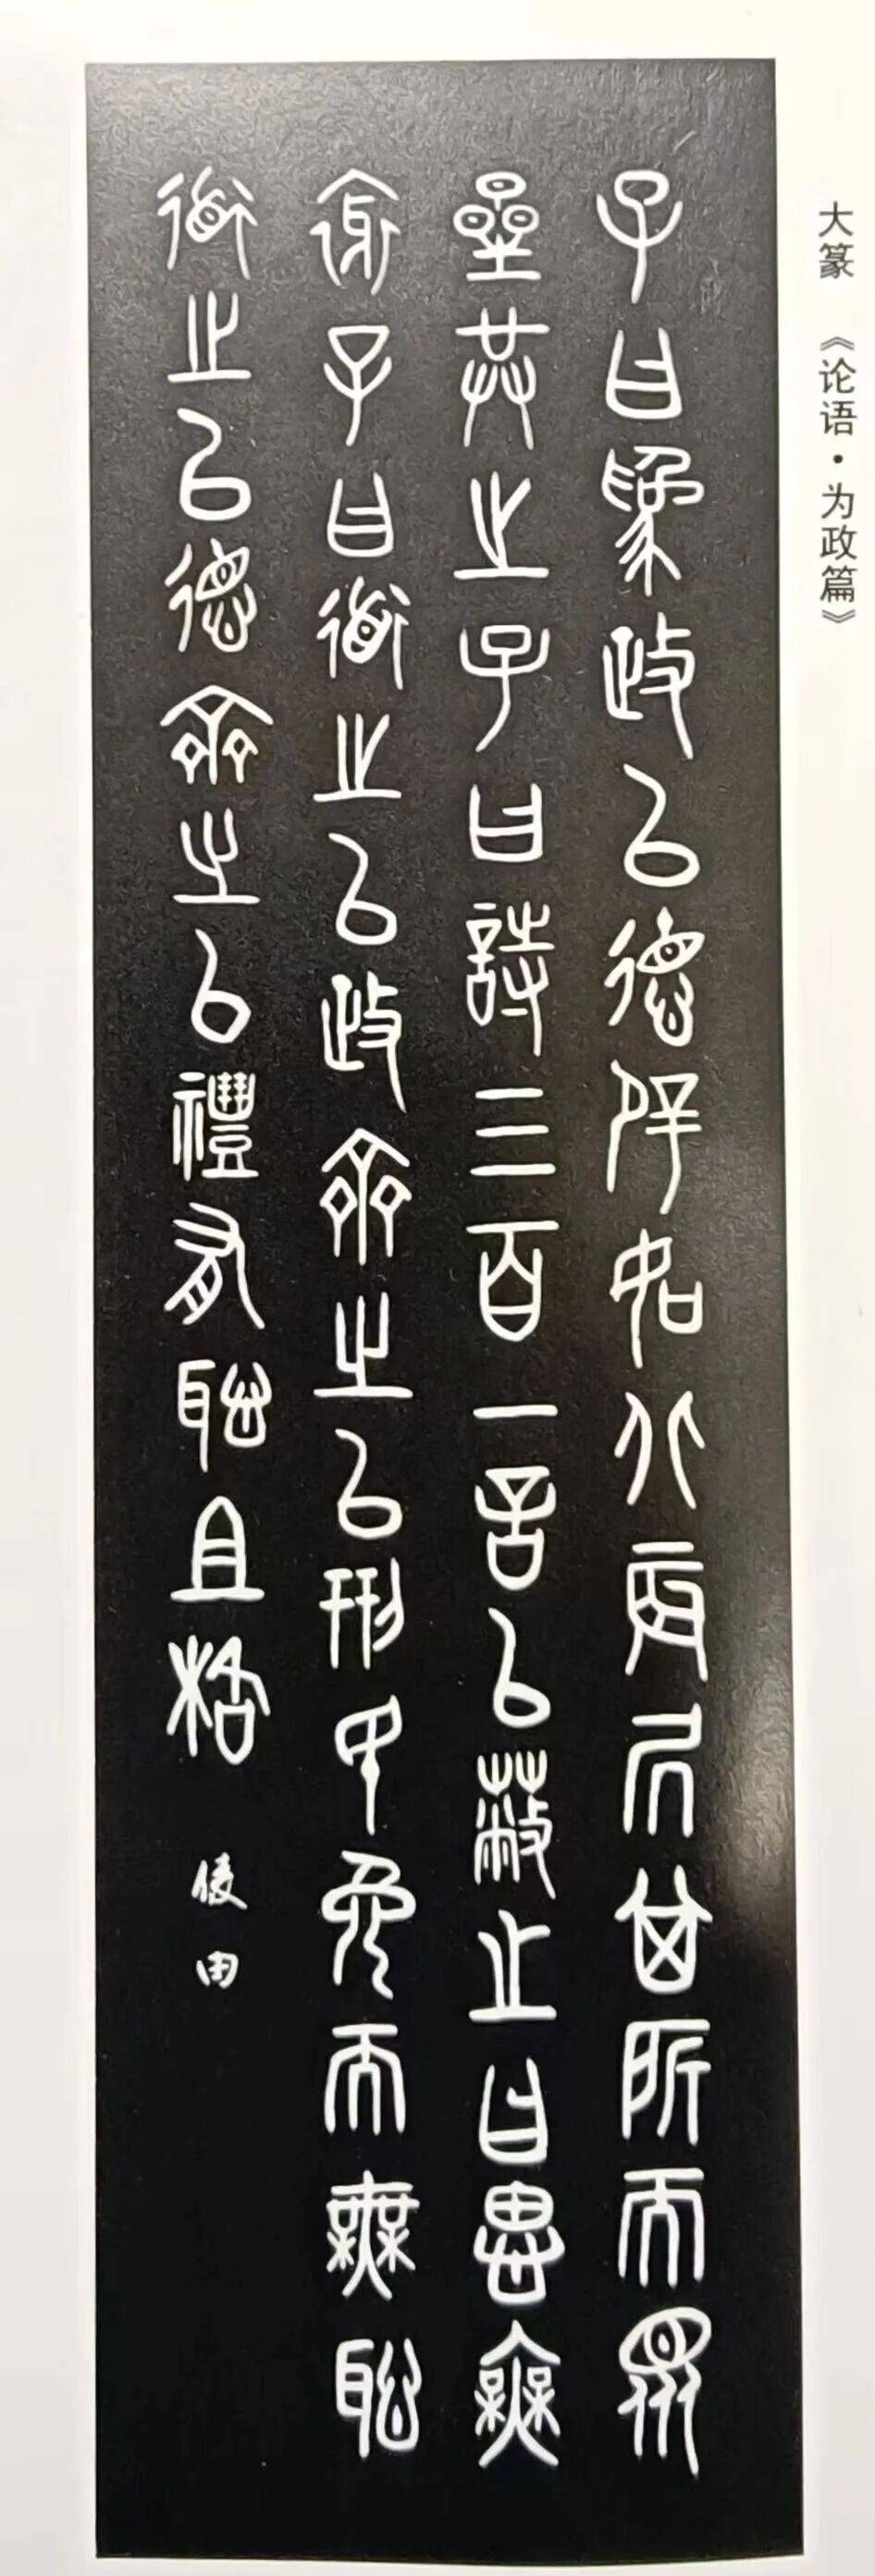 大篆 《论语·为政篇》
子曰為政以德辟如北辰居其所而眾
星共之子曰詩三百一言以蔽之曰思無
邪子曰道之以政齊之以刑民免而無恥
道之以德齊之以禮有恥且格